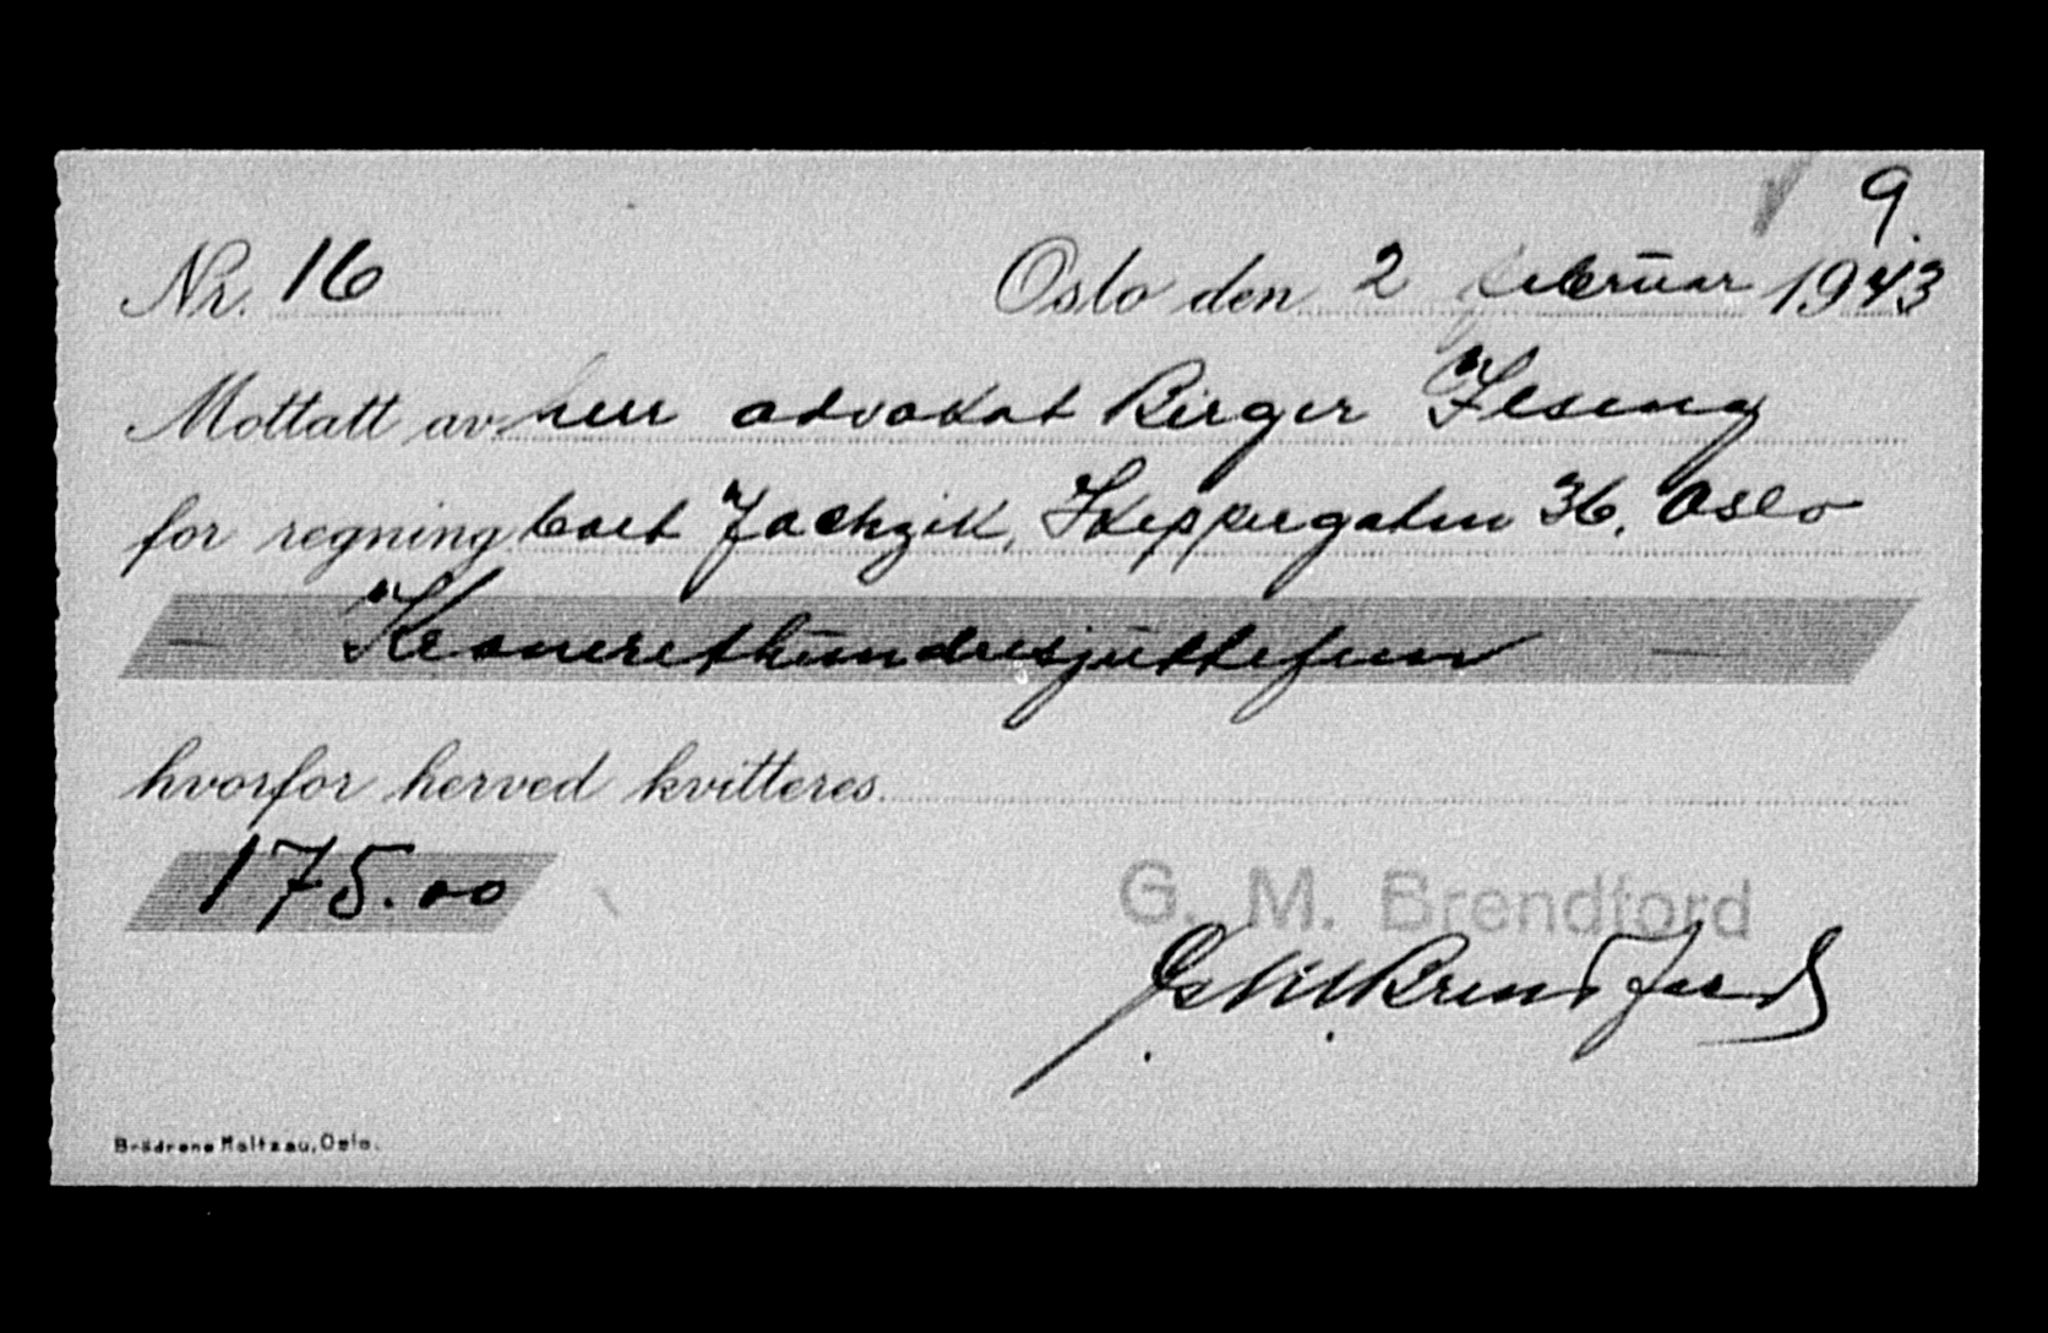 9.
Nr. 16 Oslo den 2 februar 1943
Mottatt av herr advokat Birger
for regning boet Jachzik, Skippergaten 36, Oslo
— Kroneretthundresyttifem —
hvorfor herved kvitteres.
175.00
G. M. Brendford
G. M. Brendford
Brødrene Maltzau, Oslo.